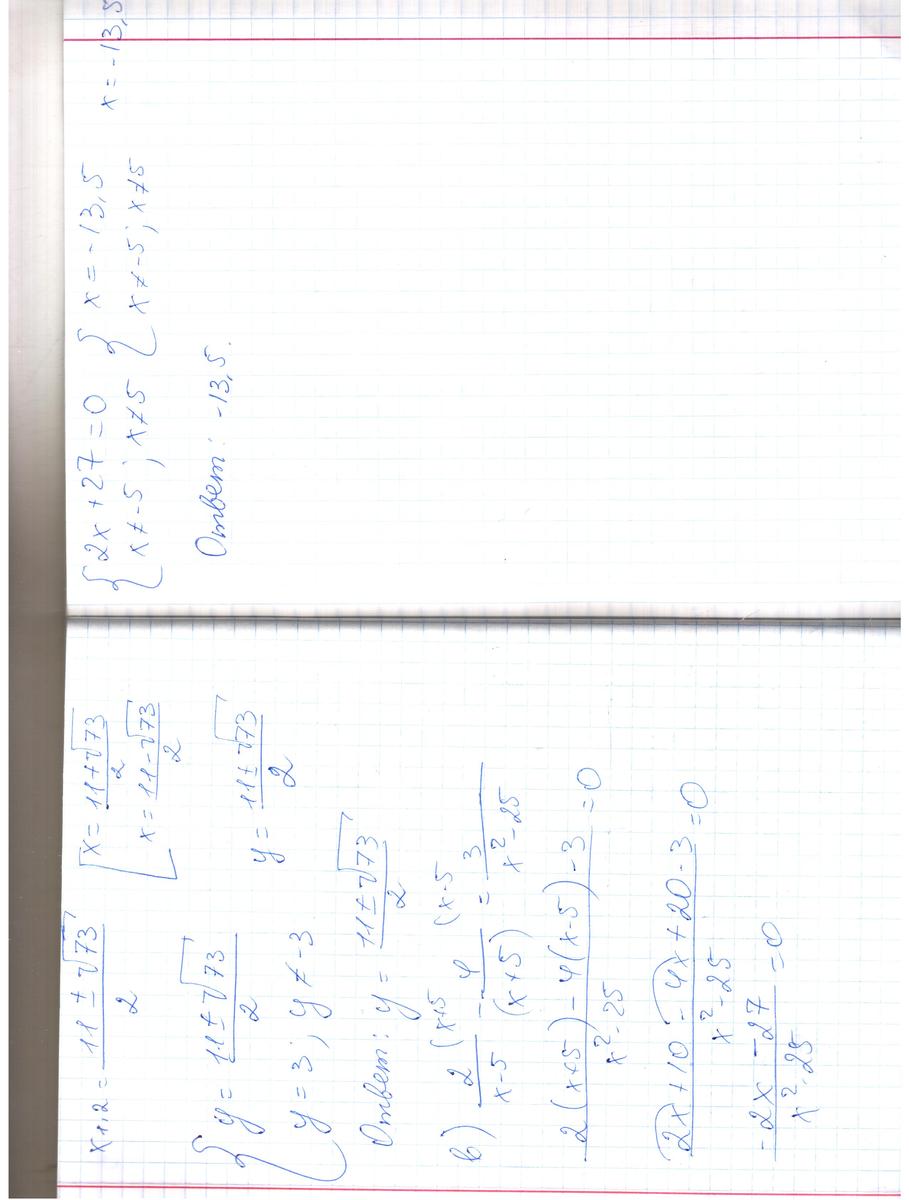 x₁,₂ = (11 ± √73)/2 [ x = (11+√73)/2
x = (11-√73)/2
{ y = (11±√73)/2 y = (11±√73)/2
y = 3; y ≠ -3
Ответ: y = (11±√73)/2
в) 2/(x-5) (x+5 - 4/(x+5) (x-5 = 3/(x²-25)
(2(x+5) - 4(x-5) - 3)/(x²-25) = 0
(2x+10-4x+20-3)/(x²-25) = 0
(-2x -27)/(x²-25) = 0
{ 2x+27=0 { x=-13,5 x=-13,5
x≠-5; x≠5 x≠-5; x≠5
Ответ: -13,5.